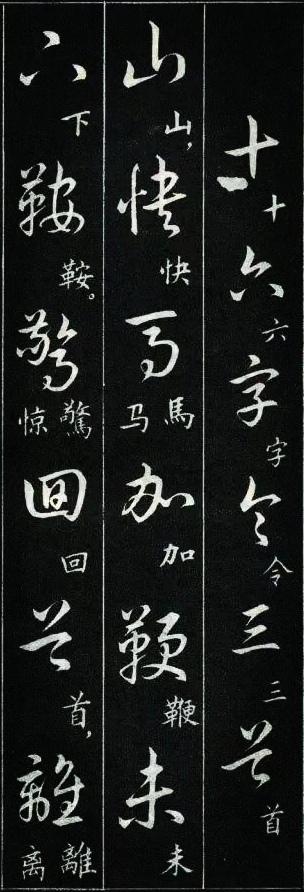 十六字令三首
十六字令三首
山快马加鞭未
山，快馬马加鞭未
下鞍驚回首離
下鞍。驚惊回首，離离